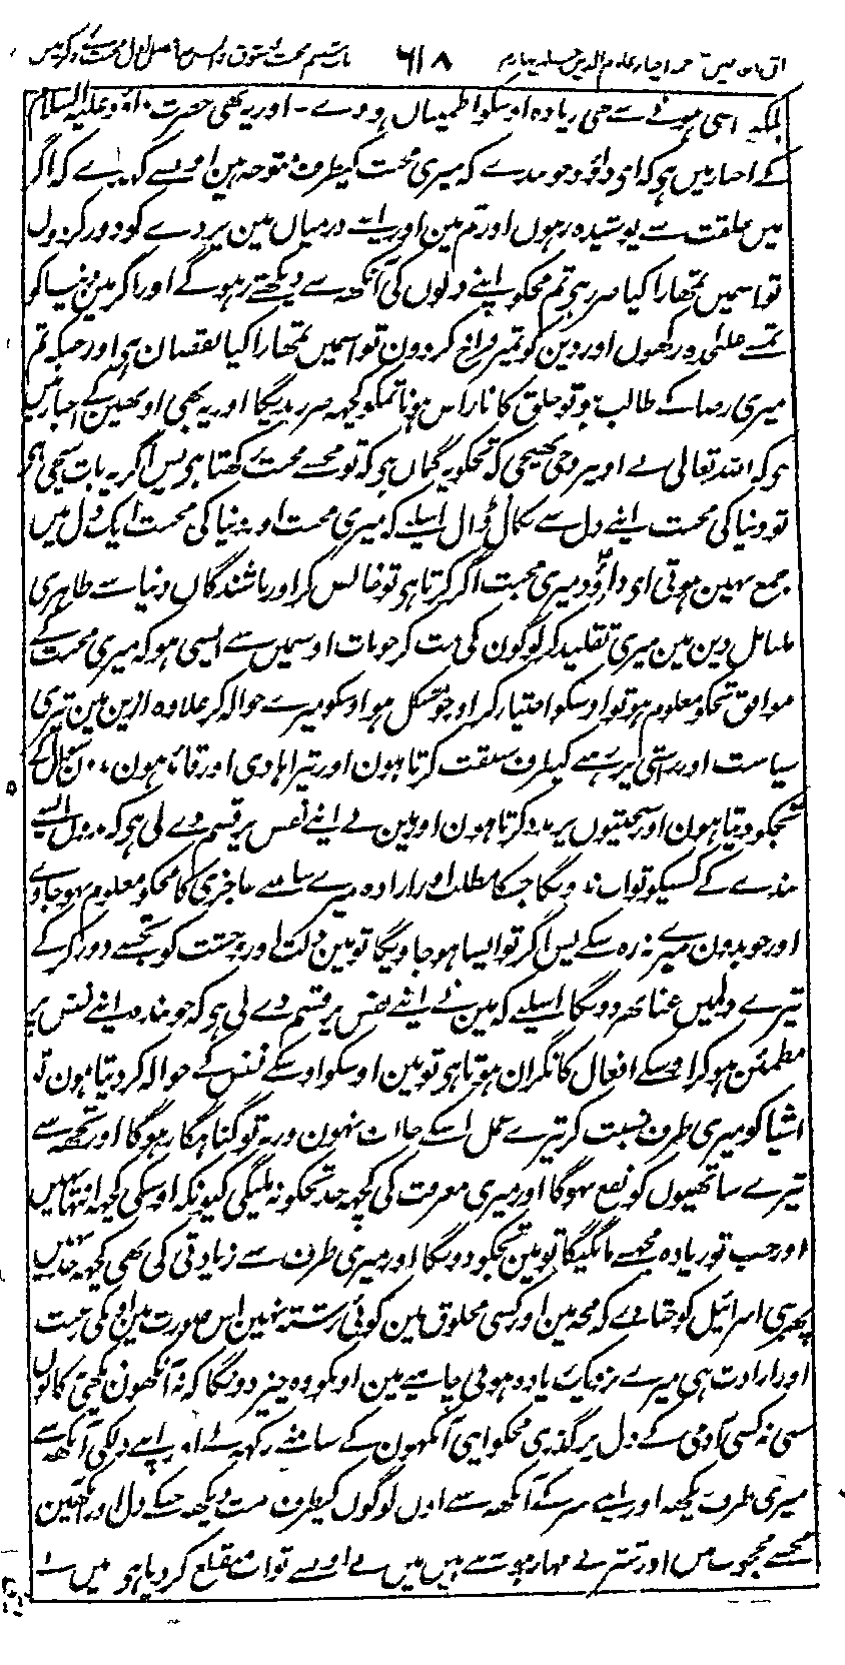 ۶۱۸
بلکہ اسی ہونے سے بھی زیادہ اوسکو اطمینان ہووے - اور یہ بھی حضرت داؤد علیہ السلام
کے اخبار میں ہو کہ اے داؤد جو بندے کہ میری محبت کیطرف متوجہ ہین اونسے کہدے کہ اگر
میں خلقت سے پوشیدہ رہوں اور تم مین اور اپنے درمیان مین پردے کو دور کردوں
تو اسمیں تمھارا کیا ضرر ہو تم مجھکو اپنے دلوں کی آنکھ سے دیکھتے رہو گے اور اگر مین دنیا کو
تمسے علیٰحدہ رکھوں اور دین کو تمپر فراخ کردون تو اسمیں تمھارا کیا نقصان ہو اور جبکہ تم
میری رضا کے طالب ہو تو خلق کا ناراض ہونا تمکو کچھہ ضرر نہ دیگا اور یہ بھی اونھین کے اخبار میں
ہو کہ اللہ تعالی نے اونپر وحی بھیجی کہ تجھکو یہ گمان ہو کہ تو مجھسے محبت رکھتا ہو پس اگر یہ بات سچی ہو
تو دنیا کی محبت اپنے دل سے نکال ڈال اسلیے کہ میری محبت اور دنیا کی محبت ایک دل میں
جمع نہین ہوتی ای داؤد میری محبت اگر کرتا ہو تو خالص کر اور باشندگان دنیا سے ظاہری
دین مین میری تقلید کر لوگون کی مت کر جو بات اوسمیں سے ایسی ہو کہ میری محبت کے
موافق تجھکو معلوم ہو تو اوسکو اختیار کر اور جو مشکل ہو اوسکو میرے حوالہ کر علاوہ ازین مین تیری
سیاست اور راستی پر رہنے کیطرف سبقت کرتا ہون اور تیرا ہادی اور قائد ہون، بدون سوال کے
تجھکو دیتا ہون اور سختیوں پر مدد کرتا ہون اور مین نے اپنے نفس پر قسم دے لی ہو کہ بدون ایسے
بندے کے کسیکو ثواب نہ دونگا جسکا مطلب اور ارادہ میرے سامنے عاجزی کا مجھکو معلوم ہو جاوے
اور جو بدون میرے نہ رہ سکے پس اگر تو ایسا ہو جاویگا تو مین ذلت اور وحشت کو تجھسے دور کرکے
تیرے دلمیں غنا بھر دونگا اسلیے کہ مین نے اپنے نفس پر قسم دے لی ہو کہ جو بندہ اپنے نفس پر
مطمئن ہوکر اوسکے افعال کا نگران ہوتا ہو تو مین اوسکو اوسکے نفس کے حوالہ کر دیتا ہون تو
اشیا کو میری طرف نسبت کر تیرے عمل اسکے خلاف نہون ورنہ تو گناہگار ہوگا اور تجھہ سے
تیرے ساتھیوں کو نفع نہوگا اور میری معرفت کی کچھہ حد تجھکو نہ ملیگی کیونکہ اوسکی کچھہ انتہا نہیں
اور جب تو زیادہ مجھسے مانگیگا تو مین تجھکو دونگا اور میری طرف سے زیادتی کی بھی کچھہ حد نہیں
پھر بنی اسرائیل کو جتا دے کہ مجھ مین اور کسی مخلوق مین کوئی رشتہ نہین اس صورت مین اونکی رغبت
اور ارادت ہی میرے نزدیک زیادہ ہونی چاہیے مین اونکو وہ چیز دونگا کہ نہ آنکھون دیکھی کانوں
سنی نہ کسی آدمی کے دل پر گذری مجھکو اپنی آنکھون کے سامنے رکھہ لے اور اپنے دلکی آنکھ سے
میری طرف دیکھہ اور اپنے سر کے آنکھہ سے اون لوگوں کیطرف مت دیکھہ جنکے دل اور آنکھین
مجھسے محجوب ہیں مین نے اونسے ثواب منقطع کر دیا ہو میں نے